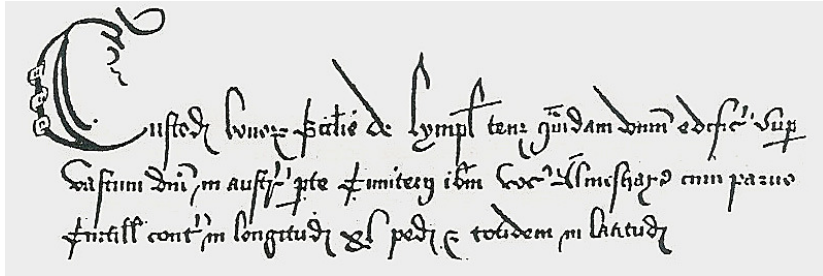 Custod bonor Ecclie de Lympl tenz quidam dum edific sup
vastum dni in austr pte Cimiterij ibm voc cum parvo
Curtill cont in longitud xl ped & totidem in latitud